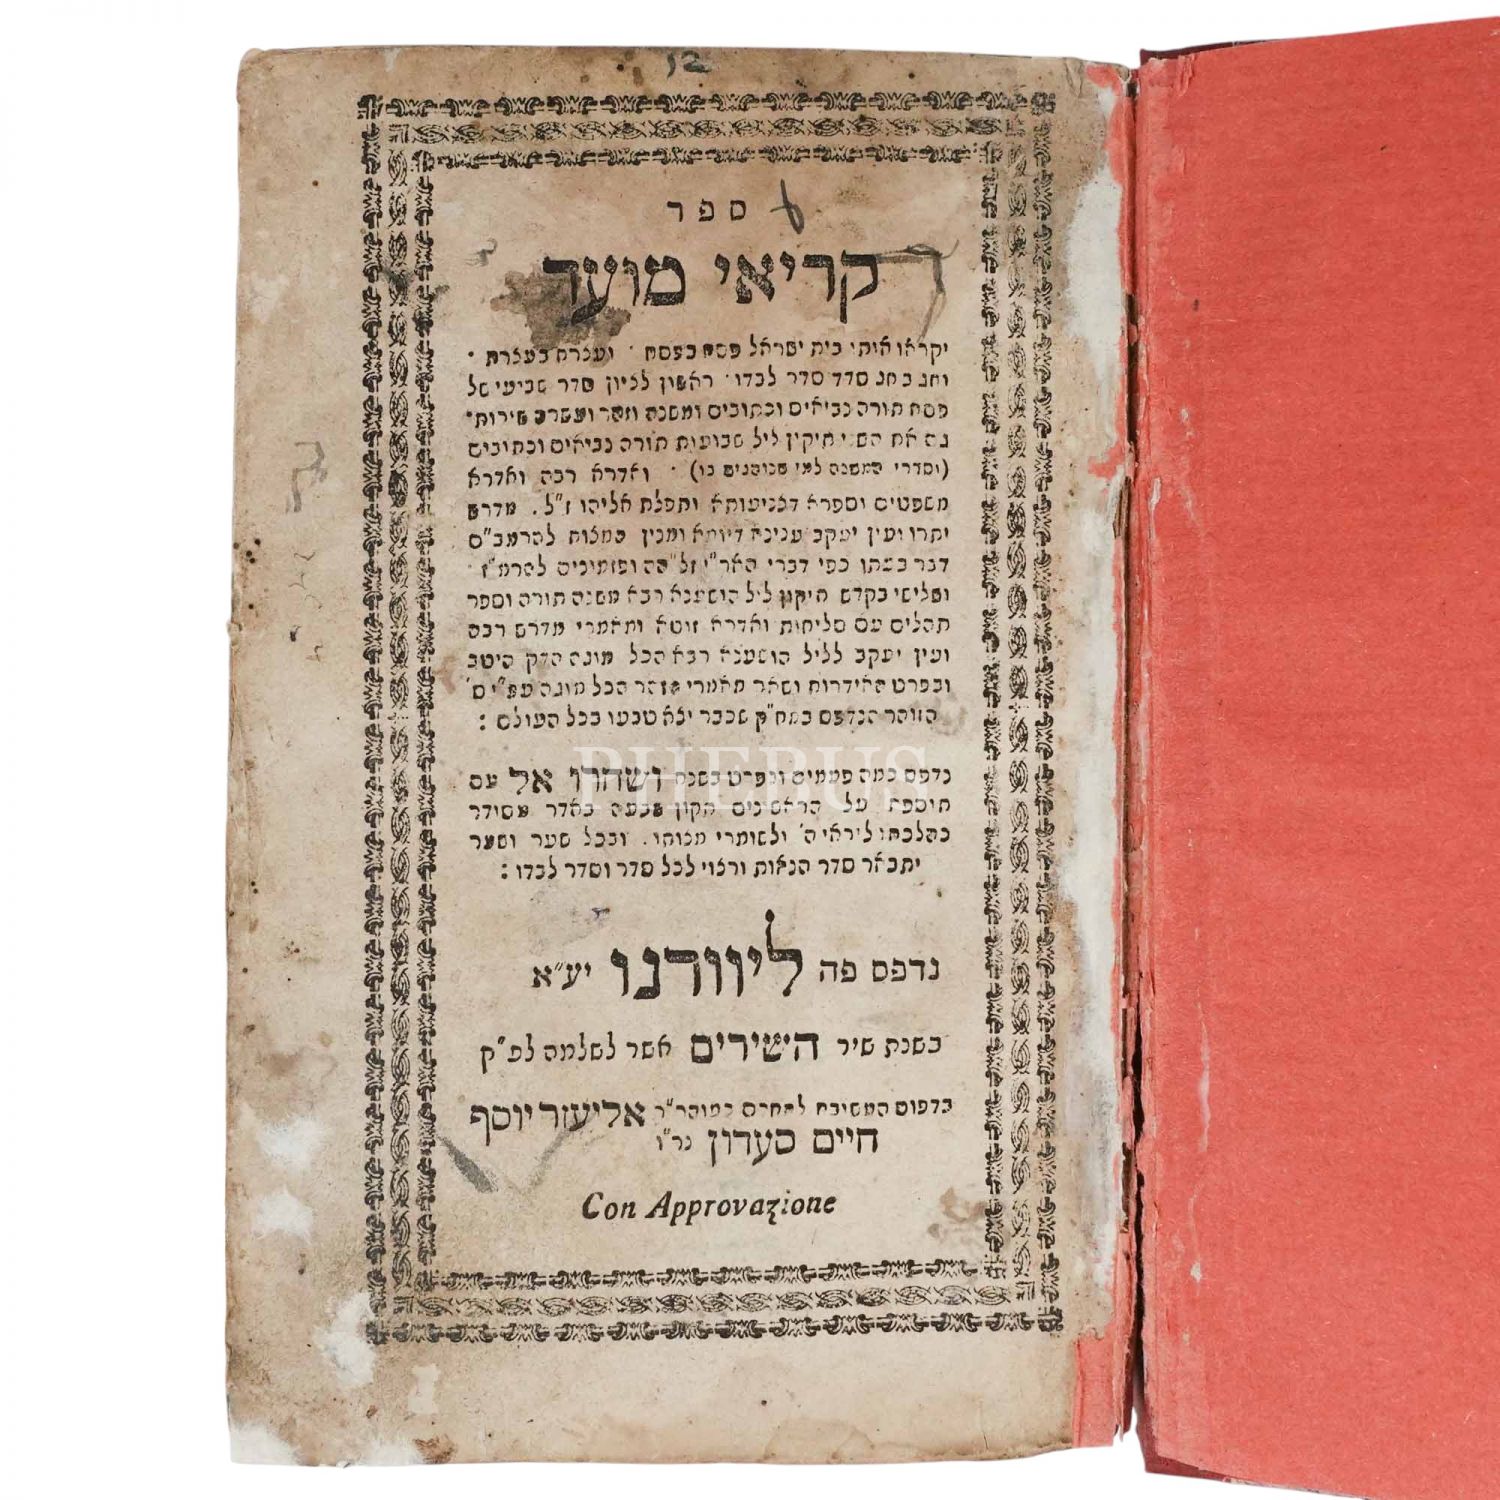 12
ספר
קריאי מועד
יקראו אותי בית ישראל פסח בפסח · ועצרת בעצרת ·
וחג בחג סדר סדר לבדו · ראשון לציון סדר שביעי של
פסח תורה נביאים וכתובים ומשנה וזהר ועשרה שירות ·
גם את השני תיקון ליל שבועות תורה נביאים וכתובים
(וסדרי המשנה למי שנוהגים בו) · ואדרא רבה ואדרא
משפטים וספרא דצניעותא ותפלת אליהו ז"ל. מדרש
יתרו ועין יעקב ומנין המצות להרמב"ם
דבר בעתו כפי דברי האר"י זל"הה ופזמונים להרמ"ז ·
ושלישי בקדש תיקון ליל הושענא רבא משנה תורה וספר
תהלים עם סליחות ואדרא זוטא ומאמרי מדרש רבה
ועין יעקב לליל הושענא רבא הכל מוגה הדק היטב
ובפרט האידרות ושאר מאמרי הזהר הכל מוגה עפ"י ס'
הזוהר הנדפס במח"ק שכבר יצא טבעו בכל העולם :
נדפס כמה פעמים ובפרט בשנת ושחרו אל עם
תוספת על הראשונים תקון שבעה באדר מסודר
כהלכתו ליראי ה' ולשומרי מצותו. ובכל שער ושער
יתבאר סדר הנאות ורצוי לכל סדר וסדר לבדו :
נדפס פה ליוורנו יע"א
בשנת שיר השירים אשר לשלמה לפ"ק
בדפוס המשובח כמוהר"ר אליעזר יוסף
חיים סעדון נר"ו
Con Approvazione
PHEBUS